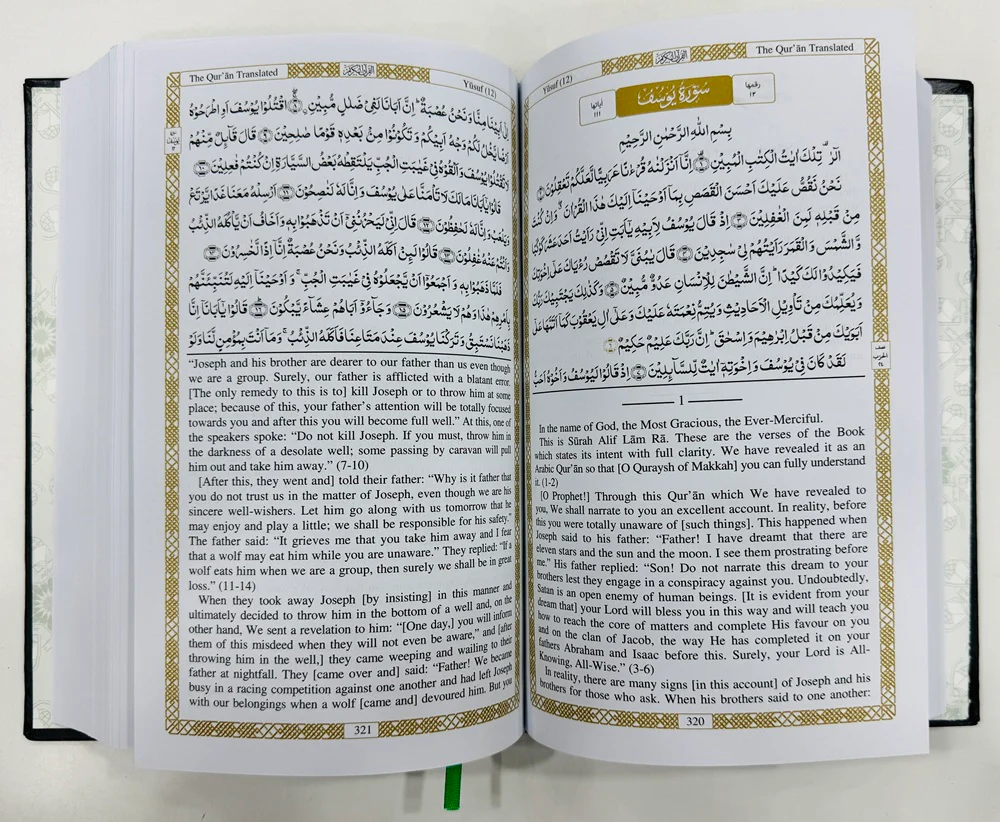 The Qur'ān Translated
القرآن الكريم
Yūsuf (12)
رقمها
١٢
سُوْرَةُ يُوْسُفَ
آياتها
١١١
بِسْمِ اللّٰهِ الرَّحْمٰنِ الرَّحِيْمِ
الٓرٰ ۚ تِلْكَ اٰيٰتُ الْكِتٰبِ الْمُبِيْنِ ﴿١﴾ اِنَّآ اَنْزَلْنٰهُ قُرْءٰنًا عَرَبِيًّا لَّعَلَّكُمْ تَعْقِلُوْنَ ﴿٢﴾
نَحْنُ نَقُصُّ عَلَيْكَ اَحْسَنَ الْقَصَصِ بِمَآ اَوْحَيْنَآ اِلَيْكَ هٰذَا الْقُرْاٰنَ ۖ وَاِنْ كُنْتَ
مِنْ قَبْلِهٖ لَمِنَ الْغٰفِلِيْنَ ﴿٣﴾ اِذْ قَالَ يُوْسُفُ لِاَبِيْهِ يٰٓاَبَتِ اِنِّيْ رَاَيْتُ اَحَدَ عَشَرَ كَوْكَبًا
وَّالشَّمْسَ وَالْقَمَرَ رَاَيْتُهُمْ لِيْ سٰجِدِيْنَ ﴿٤﴾ قَالَ يٰبُنَيَّ لَا تَقْصُصْ رُءْيَاكَ عَلٰٓى اِخْوَتِكَ
فَيَكِيْدُوْا لَكَ كَيْدًا ؕ اِنَّ الشَّيْطٰنَ لِلْاِنْسَانِ عَدُوٌّ مُّبِيْنٌ ﴿٥﴾ وَكَذٰلِكَ يَجْتَبِيْكَ رَبُّكَ
وَيُعَلِّمُكَ مِنْ تَاْوِيْلِ الْاَحَادِيْثِ وَيُتِمُّ نِعْمَتَهٗ عَلَيْكَ وَعَلٰٓى اٰلِ يَعْقُوْبَ كَمَآ اَتَمَّهَا عَلٰٓى
اَبَوَيْكَ مِنْ قَبْلُ اِبْرٰهِيْمَ وَاِسْحٰقَ ؕ اِنَّ رَبَّكَ عَلِيْمٌ حَكِيْمٌ ﴿٦﴾
لَقَدْ كَانَ فِيْ يُوْسُفَ وَاِخْوَتِهٖٓ اٰيٰتٌ لِّلسَّآىِٕلِيْنَ ﴿٧﴾ اِذْ قَالُوْا لَيُوْسُفُ وَاَخُوْهُ اَحَبُّ
نصف
الحزب
٢٤
1
In the name of God, the Most Gracious, the Ever-Merciful.
This is Sūrah Alif Lām Rā. These are the verses of the Book
which states its intent with full clarity. We have revealed it as an
Arabic Qur'ān so that [O Quraysh of Makkah] you can fully understand
it. (1-2)
[O Prophet!] Through this Qur'ān which We have revealed to
you, We shall narrate to you an excellent account. In reality, before
this you were totally unaware of [such things]. This happened when
Joseph said to his father: “Father! I have dreamt that there are
eleven stars and the sun and the moon. I see them prostrating before
me.” His father replied: “Son! Do not narrate this dream to your
brothers lest they engage in a conspiracy against you. Undoubtedly,
Satan is an open enemy of human beings. [It is evident from your
dream that] your Lord will bless you in this way and will teach you
how to reach the core of matters and complete His favour on you
and on the clan of Jacob, the way He has completed it on your
fathers Abraham and Isaac before this. Surely, your Lord is All-
Knowing, All-Wise.” (3-6)
In reality, there are many signs [in this account] of Joseph and his
brothers for those who ask. When his brothers said to one another:
320
The Qur'ān Translated
القرآن الكريم
Yūsuf (12)
اِلٰٓى اَبِيْنَا مِنَّا وَنَحْنُ عُصْبَةٌ ؕ اِنَّ اَبَانَا لَفِيْ ضَلٰلٍ مُّبِيْنِ ﴿٨﴾ اقْتُلُوْا يُوْسُفَ اَوِ اطْرَحُوْهُ
اَرْضًا يَّخْلُ لَكُمْ وَجْهُ اَبِيْكُمْ وَتَكُوْنُوْا مِنْۢ بَعْدِهٖ قَوْمًا صٰلِحِيْنَ ﴿٩﴾ قَالَ قَآىِٕلٌ مِّنْهُمْ
لَا تَقْتُلُوْا يُوْسُفَ وَاَلْقُوْهُ فِيْ غَيٰبَتِ الْجُبِّ يَلْتَقِطْهُ بَعْضُ السَّيَّارَةِ اِنْ كُنْتُمْ فٰعِلِيْنَ ﴿١٠﴾
قَالُوْا يٰٓاَبَانَا مَا لَكَ لَا تَاْمَنَّا عَلٰى يُوْسُفَ وَاِنَّا لَهٗ لَنٰصِحُوْنَ ﴿١١﴾ اَرْسِلْهُ مَعَنَا غَدًا يَّرْتَعْ
وَيَلْعَبْ وَاِنَّا لَهٗ لَحٰفِظُوْنَ ﴿١٢﴾ قَالَ اِنِّيْ لَيَحْزُنُنِيْٓ اَنْ تَذْهَبُوْا بِهٖ وَاَخَافُ اَنْ يَّاْكُلَهُ الذِّئْبُ
وَاَنْتُمْ عَنْهُ غٰفِلُوْنَ ﴿١٣﴾ قَالُوْا لَىِٕنْ اَكَلَهُ الذِّئْبُ وَنَحْنُ عُصْبَةٌ اِنَّآ اِذًا لَّخٰسِرُوْنَ ﴿١٤﴾
فَلَمَّا ذَهَبُوْا بِهٖ وَاَجْمَعُوْٓا اَنْ يَّجْعَلُوْهُ فِيْ غَيٰبَتِ الْجُبِّ ۚ وَاَوْحَيْنَآ اِلَيْهِ لَتُنَبِّئَنَّهُمْ
بِاَمْرِهِمْ هٰذَا وَهُمْ لَا يَشْعُرُوْنَ ﴿١٥﴾ وَجَآءُوْٓ اَبَاهُمْ عِشَآءً يَّبْكُوْنَ ﴿١٦﴾ قَالُوْا يٰٓاَبَانَآ اِنَّا
ذَهَبْنَا نَسْتَبِقُ وَتَرَكْنَا يُوْسُفَ عِنْدَ مَتَاعِنَا فَاَكَلَهُ الذِّئْبُ ۚ وَمَآ اَنْتَ بِمُؤْمِنٍ لَّنَا وَلَوْ
“Joseph and his brother are dearer to our father than us even though
we are a group. Surely, our father is afflicted with a blatant error.
[The only remedy to this is to] kill Joseph or to throw him at some
place; because of this, your father's attention will be totally focused
towards you and after this you will become full well.” At this, one of
the speakers spoke: “Do not kill Joseph. If you must, throw him in
the darkness of a desolate well; some passing by caravan will pull
him out and take him away.” (7-10)
[After this, they went and] told their father: “Why is it father that
you do not trust us in the matter of Joseph, even though we are his
sincere well-wishers. Let him go along with us tomorrow that he
may enjoy and play a little; we shall be responsible for his safety.”
The father said: “It grieves me that you take him away and I fear
that a wolf may eat him while you are unaware.” They replied: “If a
wolf eats him when we are a group, then surely we shall be in great
loss.” (11-14)
When they took away Joseph [by insisting] in this manner and
ultimately decided to throw him in the bottom of a well and, on the
other hand, We sent a revelation to him: “[One day,] you will inform
them of this misdeed when they will not even be aware,” and [after
throwing him in the well,] they came weeping and wailing to their
father at nightfall. They [came over and] said: “Father! We became
busy in a racing competition against one another and had left Joseph
with our belongings when a wolf [came and] devoured him. But you
321